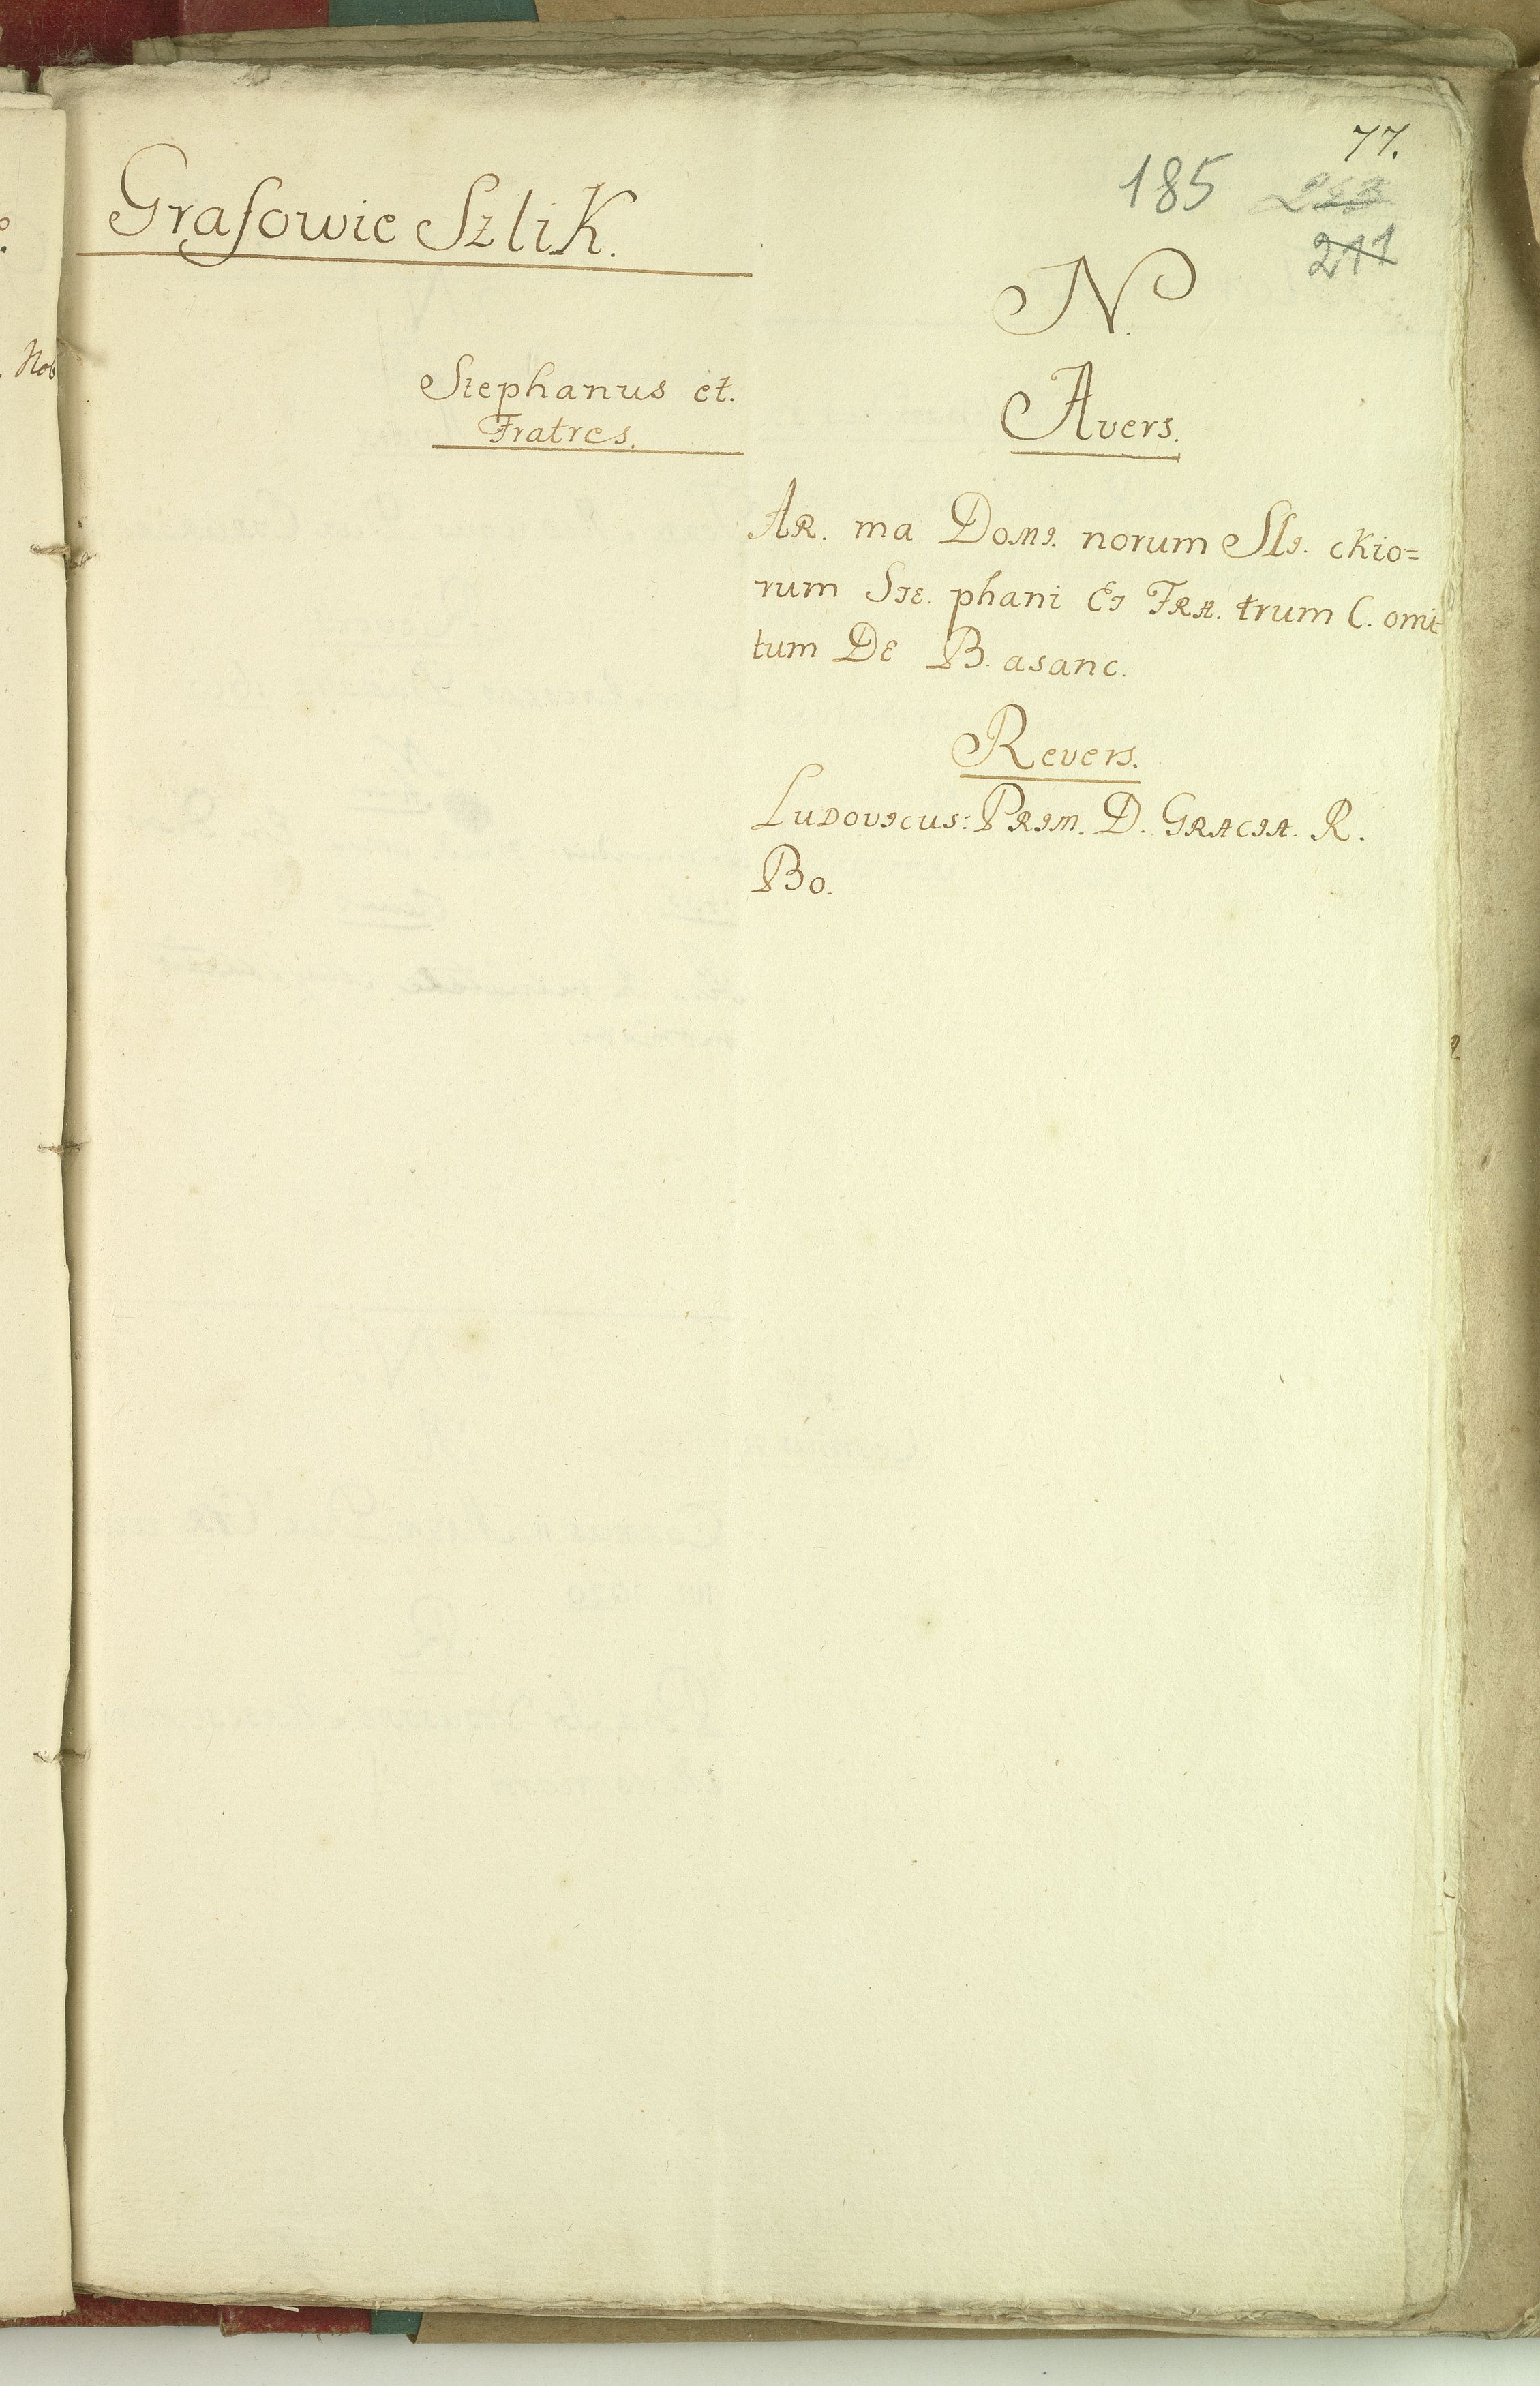 77.
185
211
Grafowie SzliK.
N.
Stephanus et.
Fratres.
Avers.
AR. ma DOMI. norum SLI. ckio=
rum STE. phani ET FRA. trum C. omi-
tum DE B. asanc.
Revers.
LUDOVICUS: PRIM. D. GRACIA. R.
Bo.